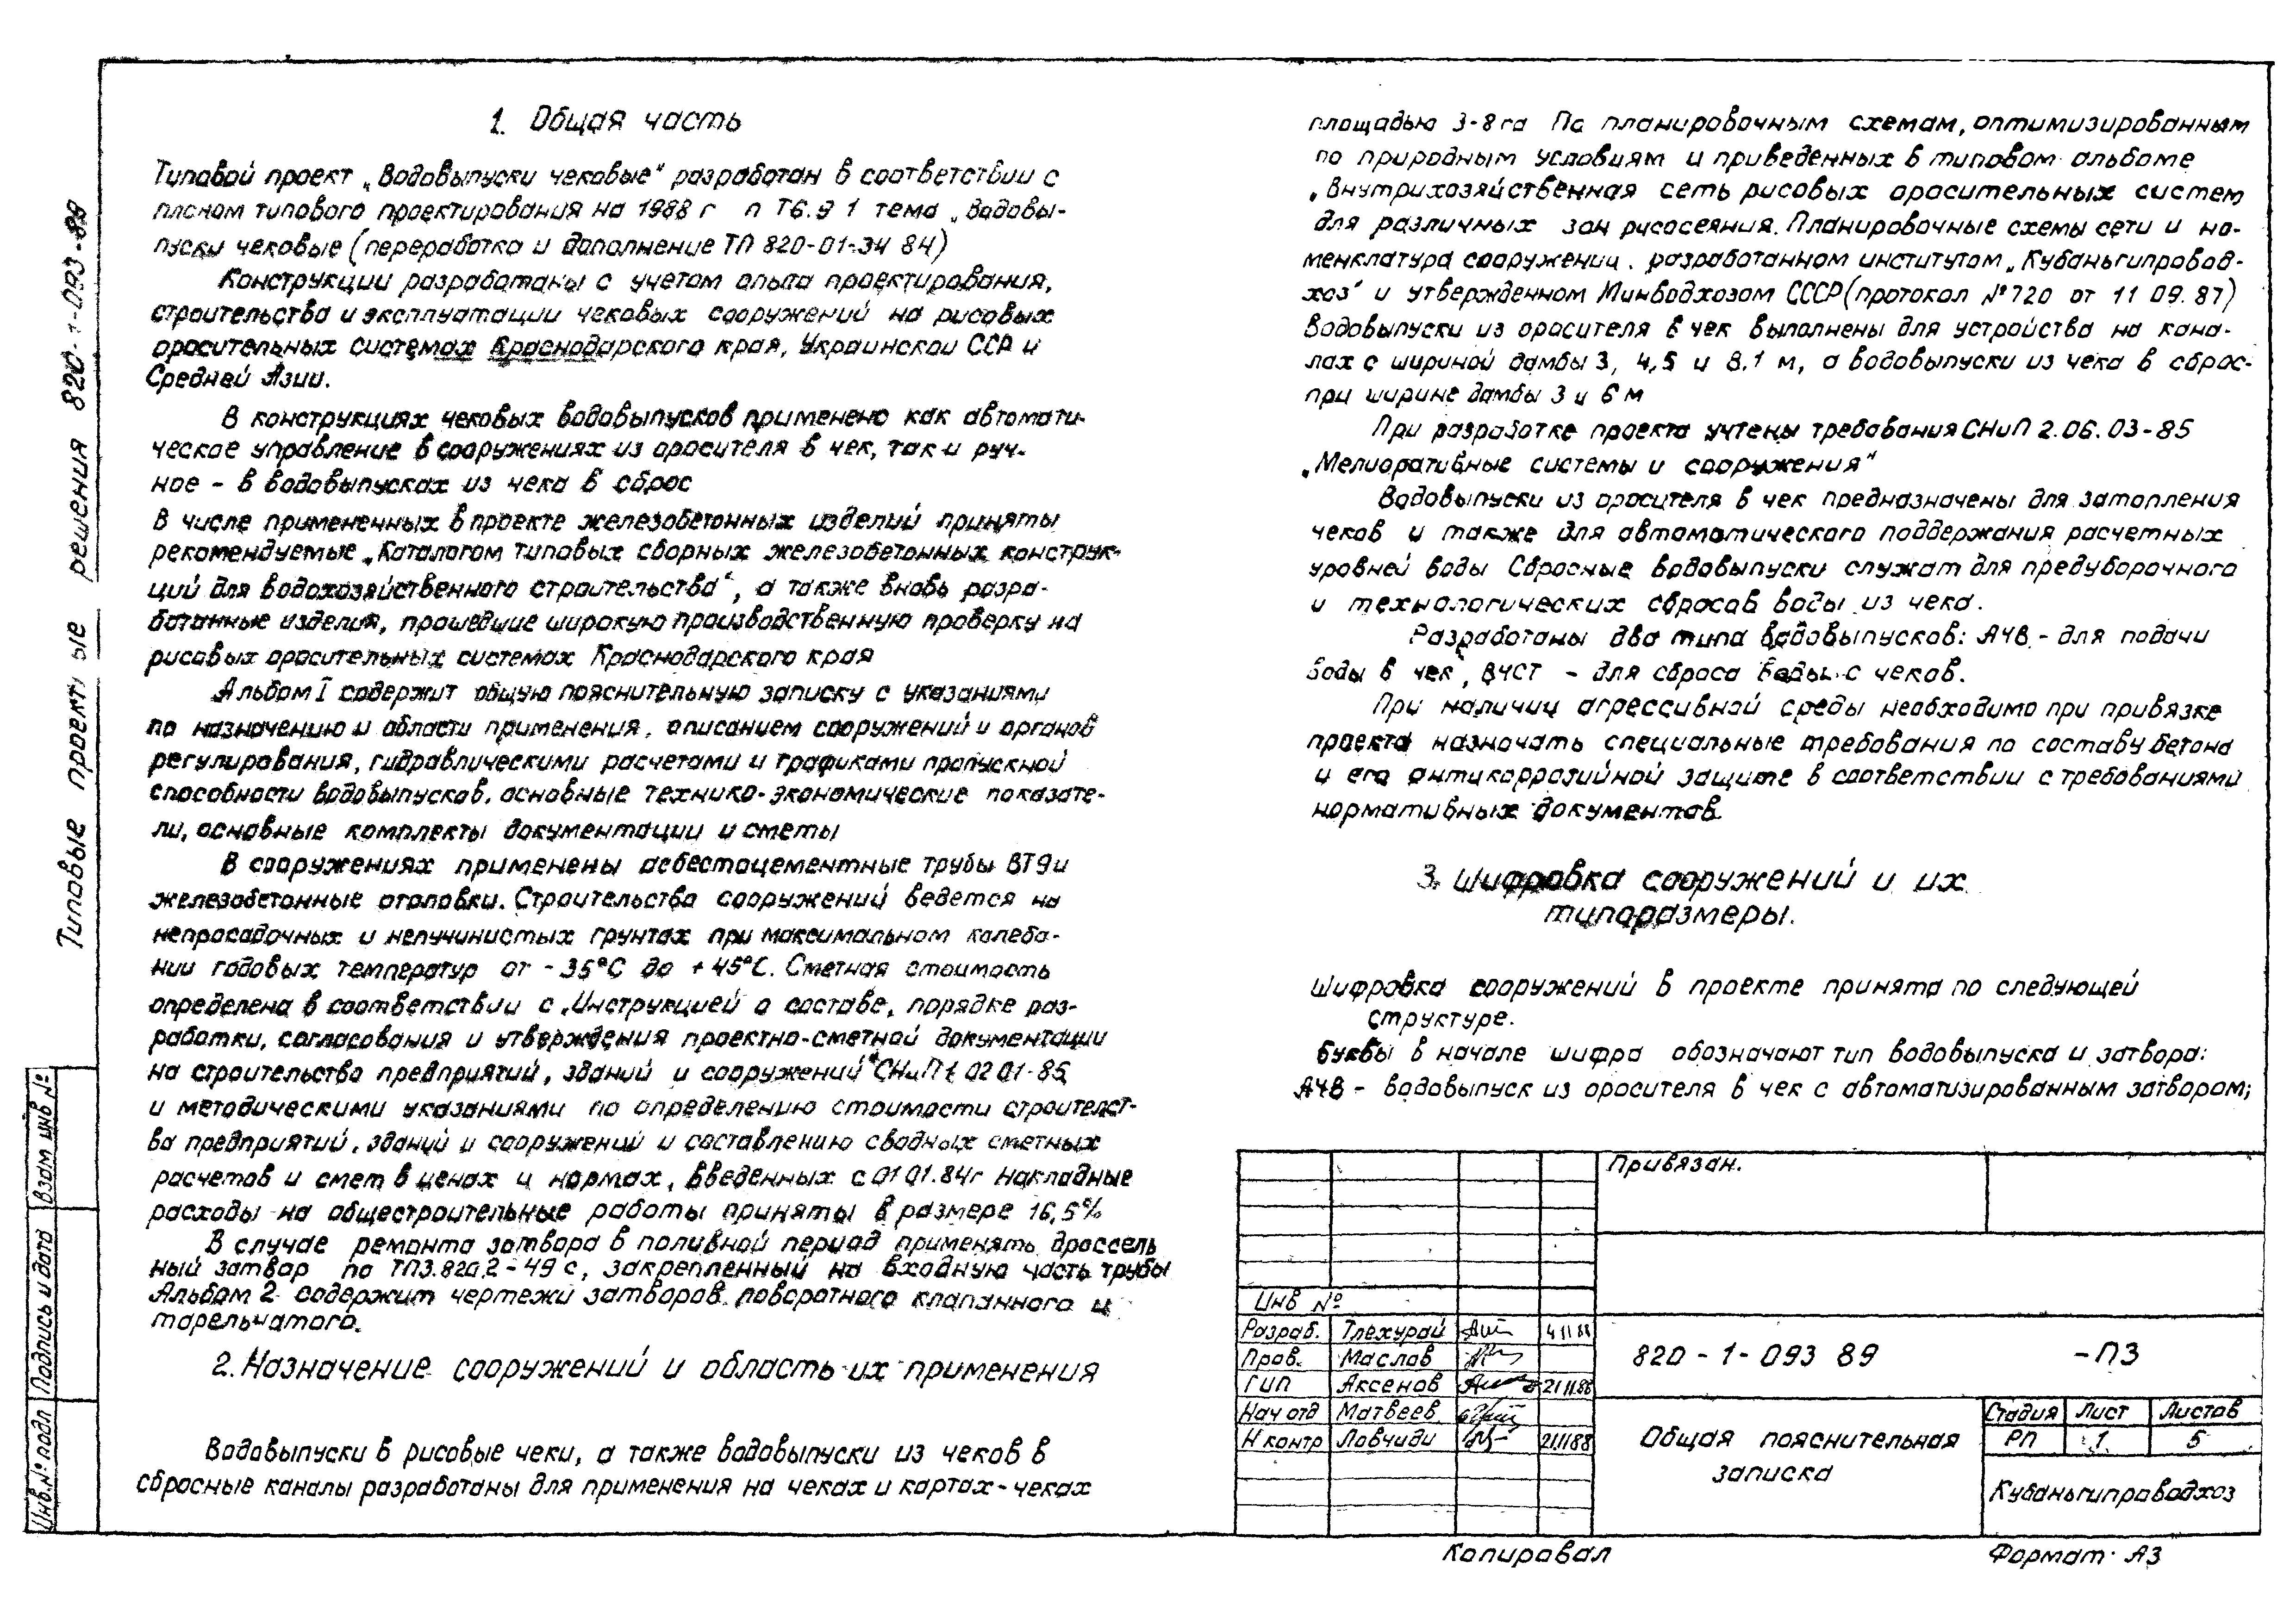 Типовые проектные решения 820-1-093-89
1. Общая часть
Типовой проект „Водовыпуски чековые" разработан в соответствии с
планом типового проектирования на 1988 г п Т6.9 1 тема „Водовы-
пуски чековые (переработка и дополнение ТП 820-01-34 84)
Конструкции разработаны с учетом опыта проектирования,
строительства и эксплуатации чековых сооружений на рисовых
оросительных системах Краснодарского края, Украинской ССР и
Средней Азии.
В конструкциях чековых водовыпусков применено как автомати-
ческое управление в сооружениях из оросителя в чек, так и руч-
ное – в водовыпусках из чека в сброс
В числе примененных в проекте железобетонных изделий приняты
рекомендуемые „Каталогом типовых сборных железобетонных конструк-
ций для водохозяйственного строительства", а также вновь разра-
ботанные изделия, прошедшие широкую производственную проверку на
рисовых оросительных системах Краснодарского края
Альбом I содержит общую пояснительную записку с указаниями
по назначению и области применения, описанием сооружений и органов
регулирования, гидравлическими расчетами и графиками пропускной
способности водовыпусков, основные технико-экономические показате-
ли, основные комплекты документации и сметы
В сооружениях применены асбестоцементные трубы ВТ9 и
железобетонные оголовки. Строительство сооружений ведется на
непросадочных и непучинистых грунтах при максимальном колеба-
нии годовых температур от -35°С до +45°С. Сметная стоимость
определена в соответствии с „Инструкцией о составе, порядке раз-
работки, согласования и утверждения проектно-сметной документации
на строительство предприятий, зданий и сооружений" СНиП 1 02 01-85
и методическими указаниями по определению стоимости строительст-
ва предприятий, зданий и сооружений и составлению сводных сметных
расчетов и смет в ценах и нормах, введенных с 01 01.84г Накладные
расходы на общестроительные работы приняты в размере 16,5%
В случае ремонта затвора в поливной период применять дроссель
ный затвор по ТП3.820.2-49 с, закрепленный на входную часть трубы
Альбом 2 содержит чертежи затворов поворотного клапанного и
тарельчатого.
2. Назначение сооружений и область их применения
Водовыпуски в рисовые чеки, а также водовыпуски из чеков в
сбросные каналы разработаны для применения на чеках и картах-чеках
площадью 3-8 га По планировочным схемам, оптимизированным
по природным условиям и приведенных в типовом альбоме
„Внутрихозяйственная сеть рисовых оросительных систем
для различных зон рисосеяния. Планировочные схемы сети и но-
менклатура сооружений. разработанном институтом „Кубаньгипровод-
хоз" и утвержденном Минводхозом СССР (протокол №720 от 11 09.87)
Водовыпуски из оросителя в чек выполнены для устройства на кана-
лах с шириной дамбы 3, 4,5 и 8.1 м, а водовыпуски из чека в сброс-
при ширине дамбы 3 и 6 м
При разработке проекта учтены требования СНиП 2.06.03-85
„Мелиоративные системы и сооружения"
Водовыпуски из оросителя в чек предназначены для затопления
чеков и также для автоматического поддержания расчетных
уровней воды Сбросные водовыпуски служат для предуборочного
и технологических сбросов воды из чека.
Разработаны два типа водовыпусков: АЧВ – для подачи
воды в чек, ВЧСТ – для сброса воды с чеков.
При наличии агрессивной среды необходимо при привязке
проекта назначать специальные требования по составу бетона
и его антикоррозийной защите в соответствии с требованиями
нормативных документов.
3. Шифровка сооружений и их
типоразмеры.
Шифровка сооружений в проекте принята по следующей
структуре.
Буквы в начале шифра обозначают тип водовыпуска и затвора:
АЧВ – водовыпуск из оросителя в чек с автоматизированным затвором;
Привязан.
Инв №
Разраб. Тлехурай 4 11 88
Пров. Маслов
ГИП Аксенов 21 11 88
Нач отд Матвеев
Н контр Ловчиди 21 11 88
820 - 1 - 093 89 -ПЗ
Общая пояснительная
записка
Стадия Лист Листов
РП 1 5
Кубаньгипроводхоз
Взам инв №
Подпись и дата
Инв.№ подл
Копировал Формат А3